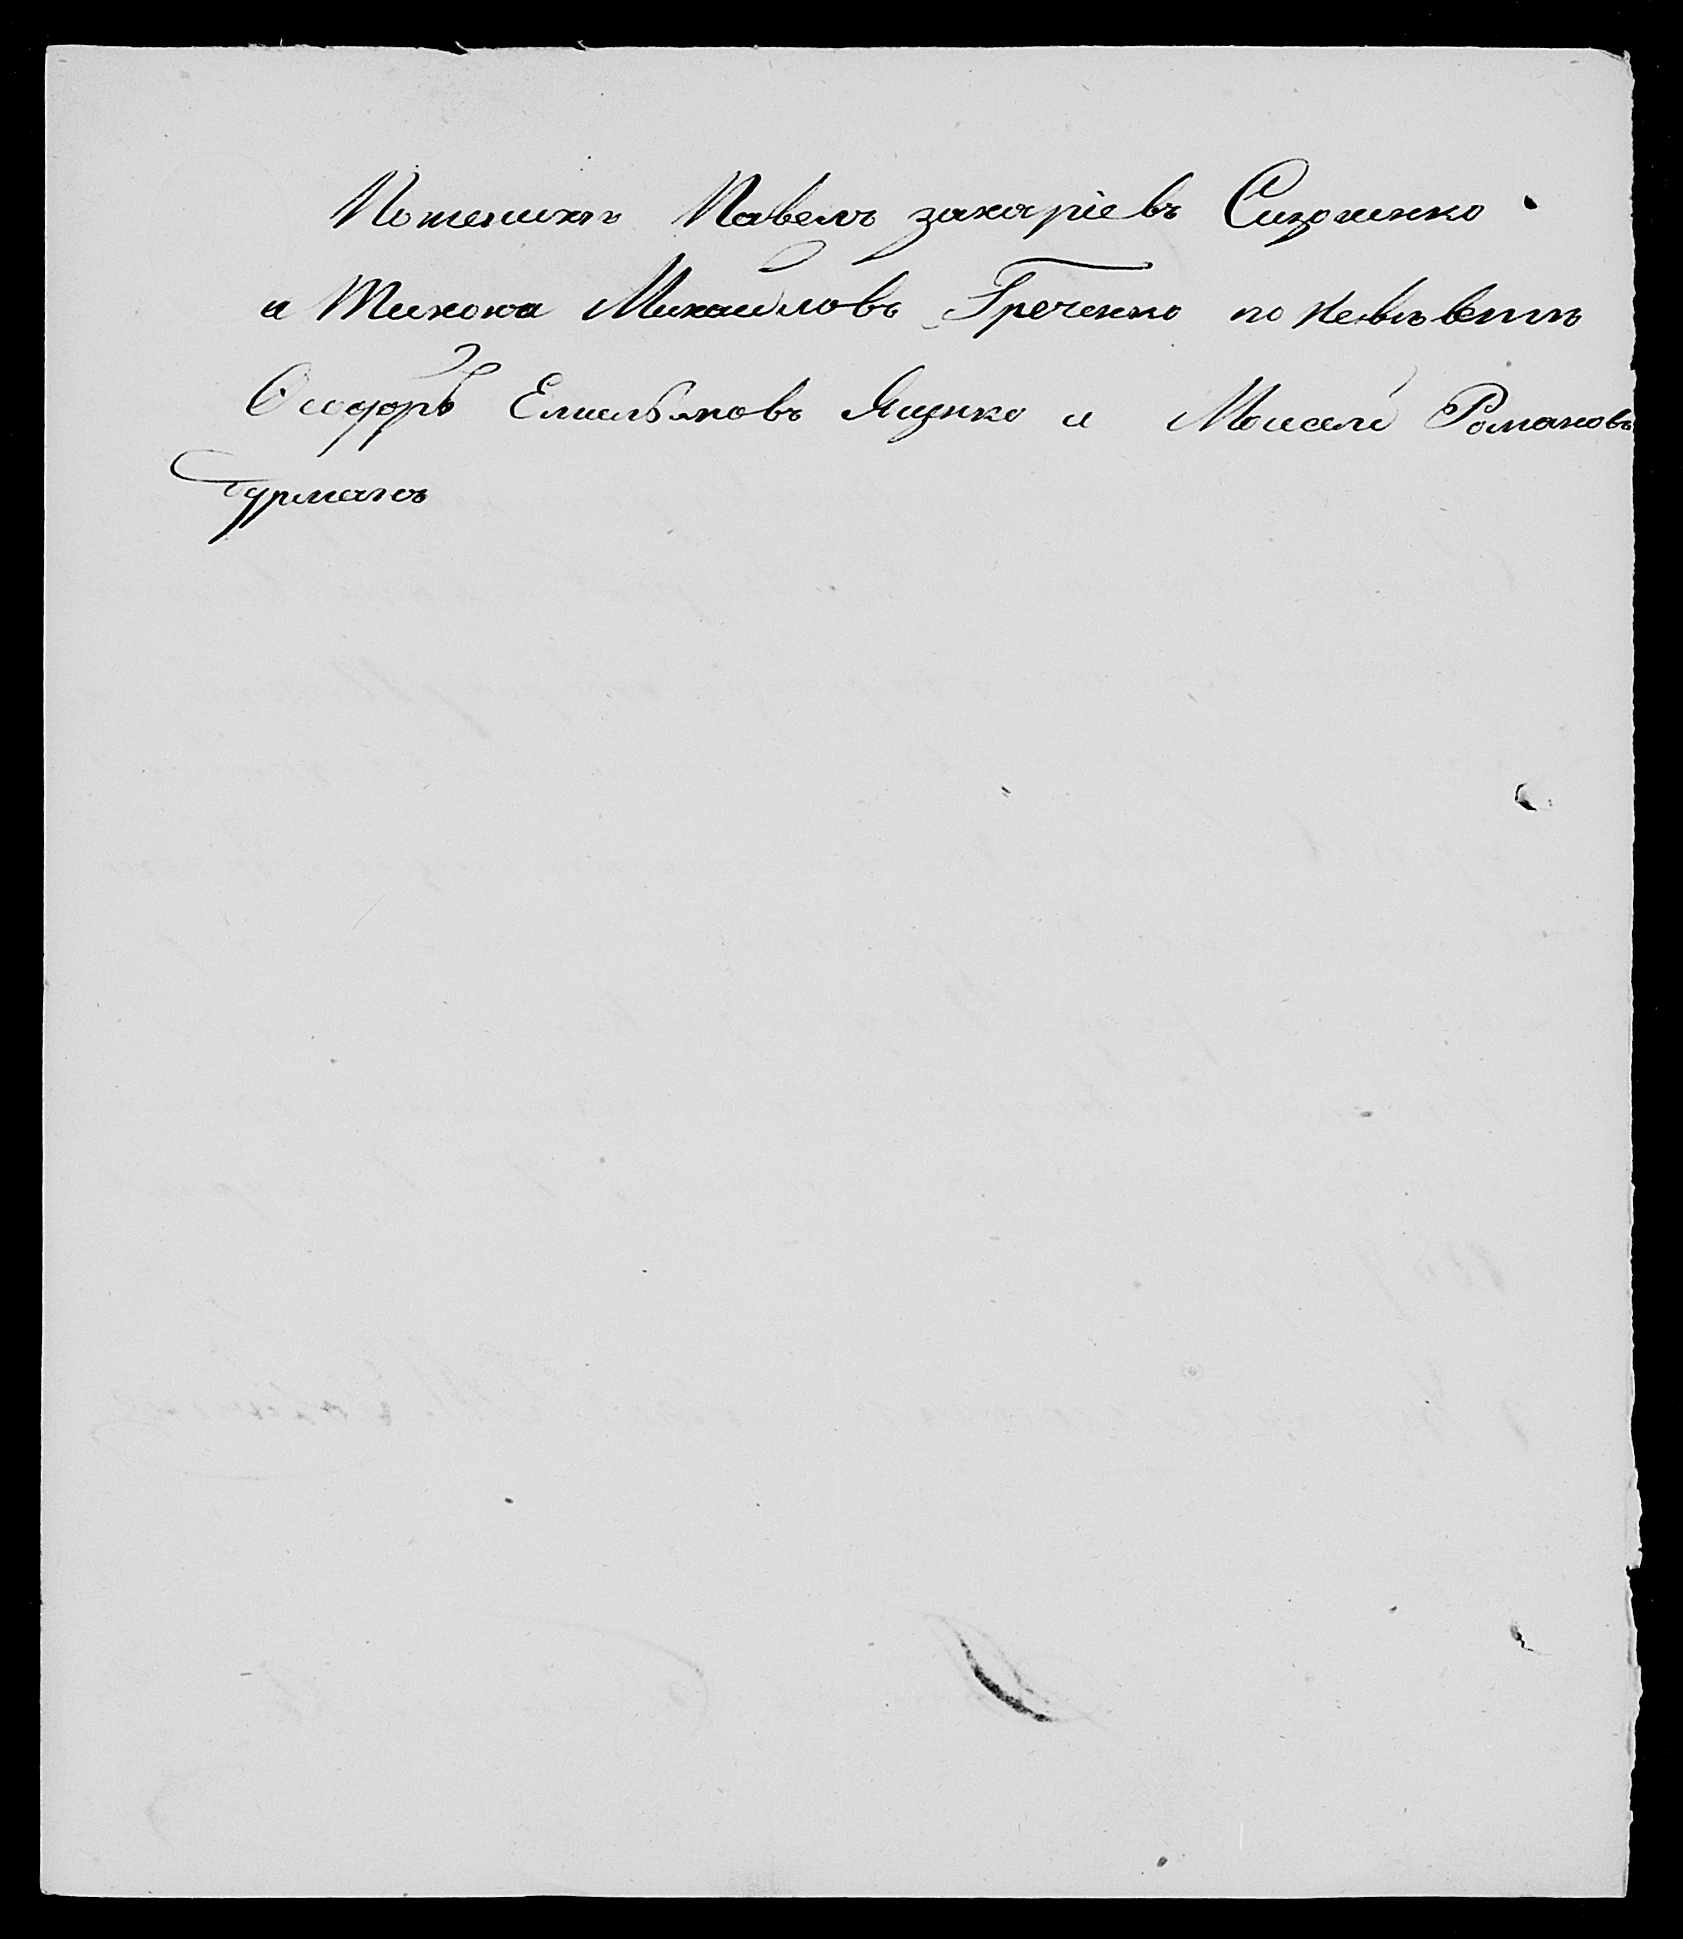 По женихѣ Павелъ Захаріевъ Сизоненко
и Тихонъ Михайловъ Греченко по невѣстѣ
Ѳеодоръ Емельяновъ Яценко и Моисей Романовъ
Бурманъ